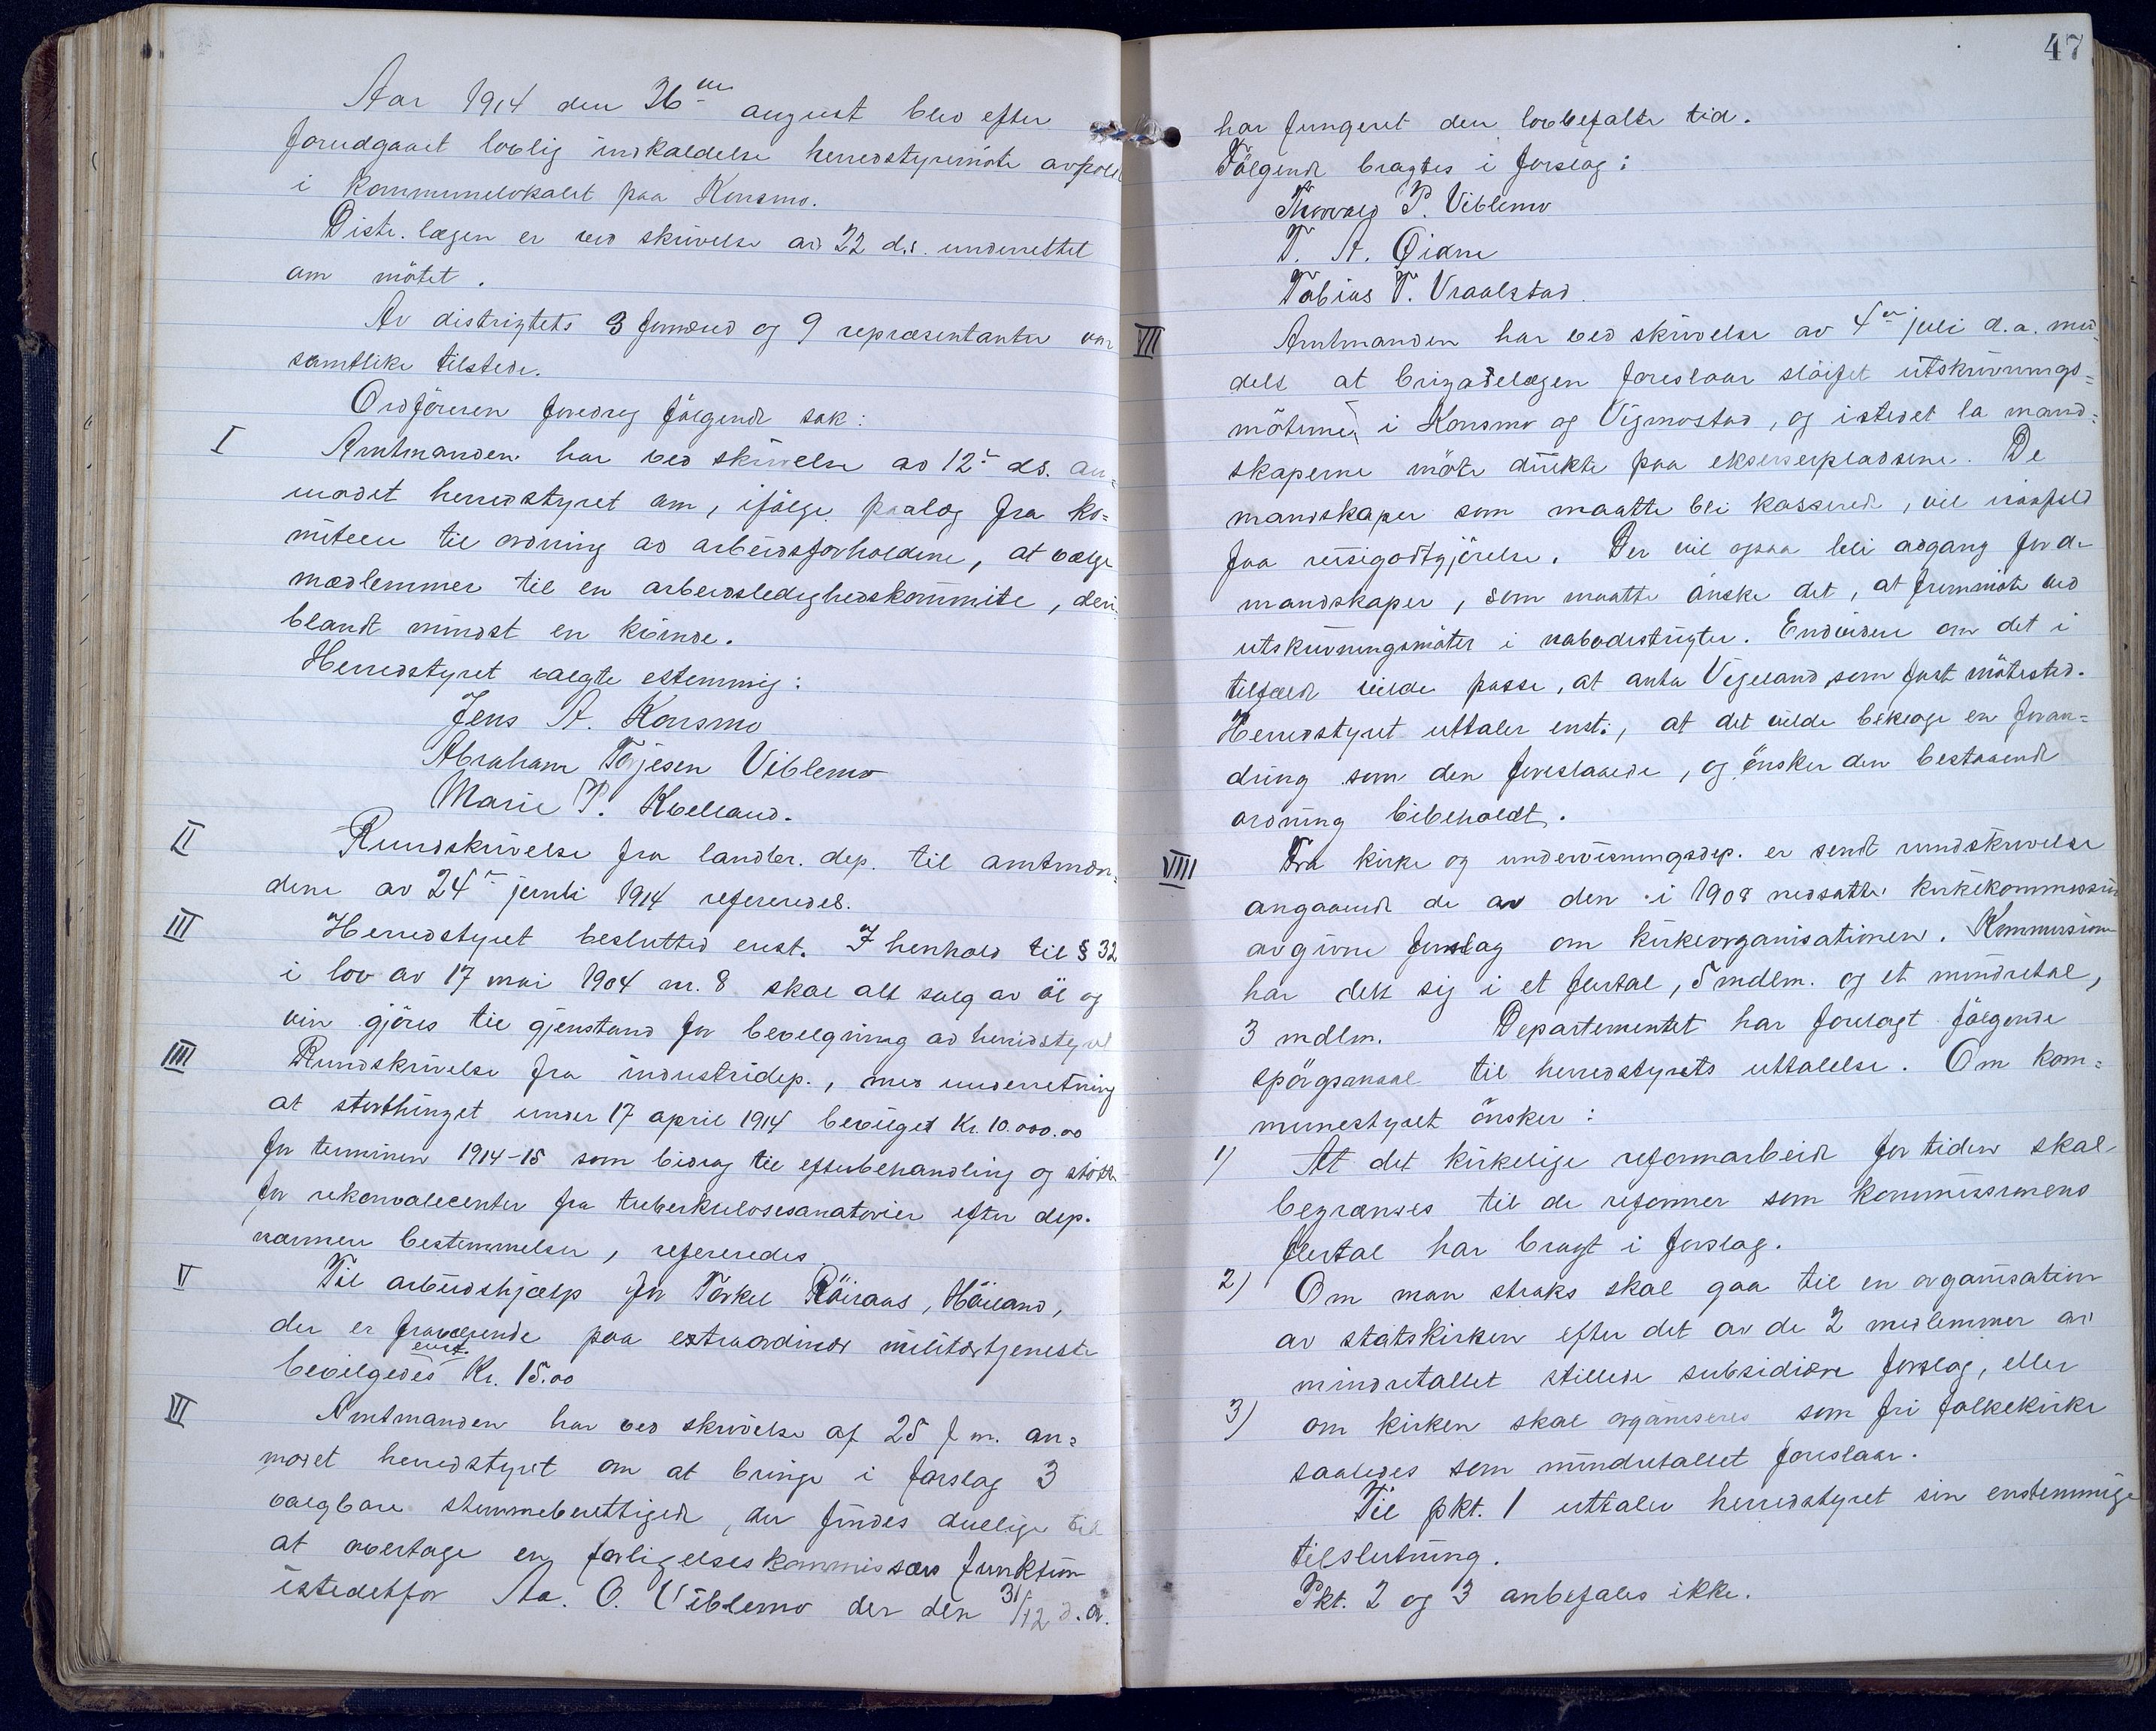 Aar 1914 den 26de august blev efter
forudgaaet lovlig indkaldelse herredstyremöte avholdt
i kommunelokalet paa Konsmo.
Distr. lægen er ved skrivelse av 22 d.s. underrettet
om mötet.
Av distriktets 3 formænd og 9 repræsentanter var
samtlike tilstede.
Ordföreren foredrog fölgende sak:
I Amtmanden har ved skrivelse av 12te ds. an=
modet herredstyret om, ifölge paalæg fra ko=
miteen til ordning av arbeidsforholdene, at vælge
medlemmer til en arbeidsledighedskommite, deri
blandt mindst en kvinde.
Herredstyret valgte estemmig:
Jens A. Konsmo
Abraham Torjesen Viblemo
Marie T. Kvelland.
II Rundskrivelse fra landbr. dep. til amtmæn=
dene av 24de juni 1914 refereredes.
III Herredstyret beslutted enst. I henhold til § 32
i lov av 17 mai 1904 nr. 8 skal alt salg av öl og
vin gjöres til gjenstand for bevilgning av herredstyret
IIII Rundskrivelse fra industridep., med underretning
at storthinget under 17 april 1914 bevilget Kr. 10.000.00
for terminen 1914-15 som bidrag til efterbehandling og stötte
for rekonvalecenter fra tuberkulosesanatorier efter dep.
nærmere bestemmelser, refereredes
V Til arbeidshjælp for Torkel Röiraas, Höiland,
der er fraværende paa extraordinær militærtjeneste
enst.
bevilgedes Kr. 15.00
VI Amtmanden har ved skrivelse af 25 f m. an=
modet herredstyret om at bringe i forslag 3
valgbare stemmeberettigede, der findes duelige til
at overtage en forligelseskommissærs funktion
istedetfor Aa. O. Viblemo der den 31/12 d.a.
47
har fungeret den lovbefalte tid.
Fölgende bragtes i forslag:
Thorvald P. Viblemo
T. A. Öidne
Tobias T. Vraalstad.
VII Amtmanden har ved skrivelse av 4de juli d.a. med=
delt at brigadelægen foreslaar slöifet utskrivnings=
möterne i Konsmo og Vigmostad, og istedet la mand=
skaperne möte direkte paa ekserserpladsene. De
mandskaper som maatte bli kasserede, vil isaafald
faa reisegodtgjörelse. Der vil ogsaa bli adgang for de
mandskaper, som maatte önske det, at fremmöte ved
utskrivningsmöter i nabodistrigter. Endvidere om det i
tilfælde vilde passe, at anta Vigeland som fast mötested.
Herredstyret uttaler enst., at det vilde beklage en foran=
dring som den foreslaaede, og önsker den bestaaende
ordning bibeholdt.
VIII Fra kirke og undervisningsdep. er sendt rundskrivelse
angaaende de av den i 1908 nedsatte kirkekommission
avgivne forslag om kirkeorganisationen. Kommissionen
har delt sig i et flertal, 5 mdlm. og et mindretal,
3 mdlm. Departementet har forelagt fölgende
spörgsmaal til herredstyrets uttalelse. Om kom=
munestyret önsker:
1) At det kirkelige reformarbeide for tiden skal
begrænses til de reformer som kommissionens
flertal har bragt i forslag.
2) Om man straks skal gaa til en organisation
av statskirken efter det av de 2 medlemmer av
mindretallet stillede subsidiære forslag, eller
3) om kirken skal organiseres som fri folkekirke
saaledes som mindretallet foreslaar.
Til pkt. 1 uttaler herredstyret sin enstemmige
tilslutning.
Pkt. 2 og 3 anbefales ikke.